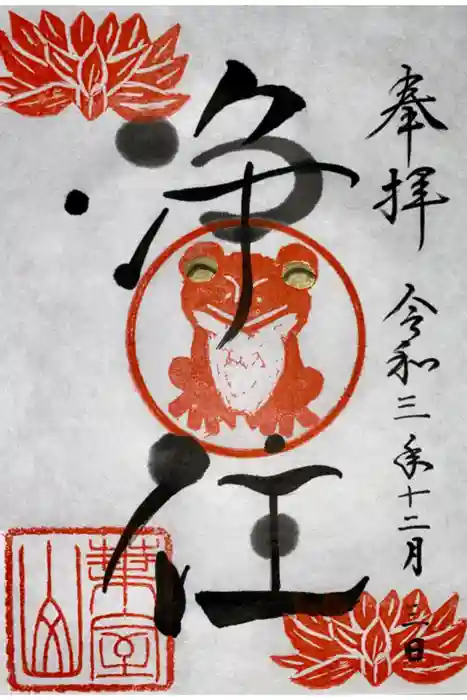 奉拝 令和三年十二月三日
浄往